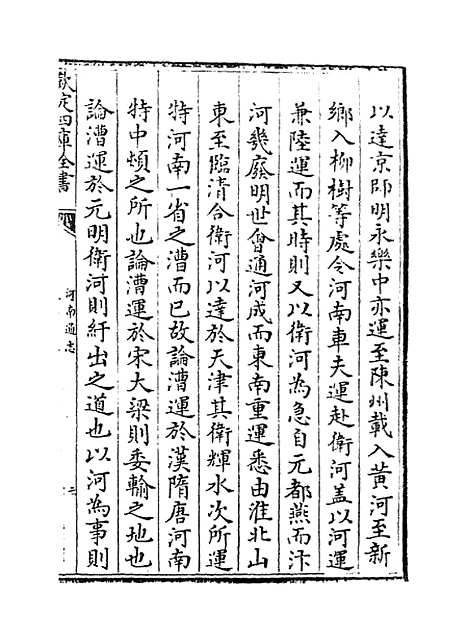 以達京師明永樂中亦運至陳州載入黄河至新
鄉入柳樹等處令河南車夫運赴衛河盖以河運
兼陸運而其時則又以衛河為急自元都燕而汴
河幾廢明世㑹通河成而東南重運悉由淮北山
東至臨清合衛河以達於天津其衛輝水次所運
特河南一省之漕而已故論漕運於漢隋唐河南
特中頓之所也論漕運於宋大梁則委輸之地也
論漕運於元明衛河則紆出之道也以河為事則
欽定四庫全書
河南通志